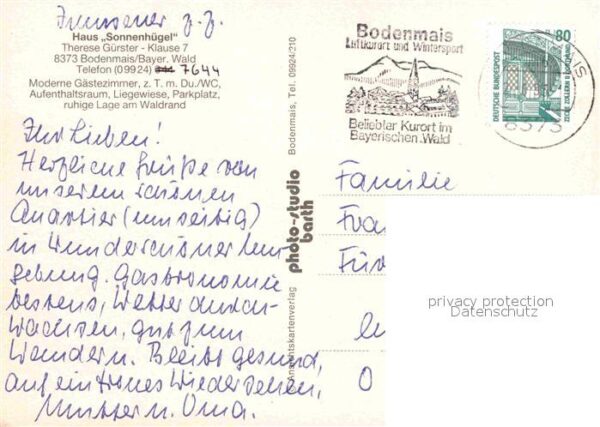 z. Z.
Haus „Sonnenhügel"
Therese Gürster - Klause 7
8373 Bodenmais/Bayer. Wald
Telefon (09924) 7644
Moderne Gästezimmer, z. T. m. Du./WC,
Aufenthaltsraum, Liegewiese, Parkplatz,
ruhige Lage am Waldrand
Ihr Lieben!
Herzliche Grüße von
unserem schönen
Quartier (umseitig)
in wunderschöner Um-
gebung. Gastronomie
bestens, Wetter durch-
wachsen, gut zum
Wandern. Bleibt gesund,
auf ein frohes Wiedersehen,
Mutter u. Oma.
Bodenmais, Tel. 09924/210
photo-studio
barth
Ansichtskartenverlag
Bodenmais
Luftkurort und Wintersport
Beliebter Kurort im
Bayerischen Wald
80
DEUTSCHE BUNDESPOST
ZECHE ZOLLERN II DORTMUND
8373
Familie
Fra
Für
O
privacy protection
Datenschutz